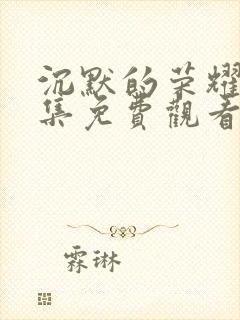 沉默的荣耀
集免費觀看
霖琳